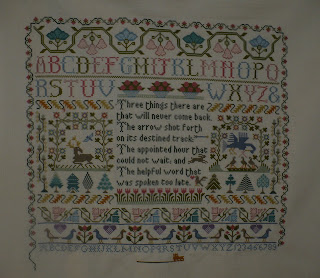 ABCDEFGHIJKLMNOPQ
RSTUV WXYZ&
Three things there are
that will never come back.
The arrow shot forth
on its destined track.
The appointed hour that
could not wait, and
The helpful word that
was spoken too late.
ABCDEFGHIJKLMNOPQRSTUVWXYZ